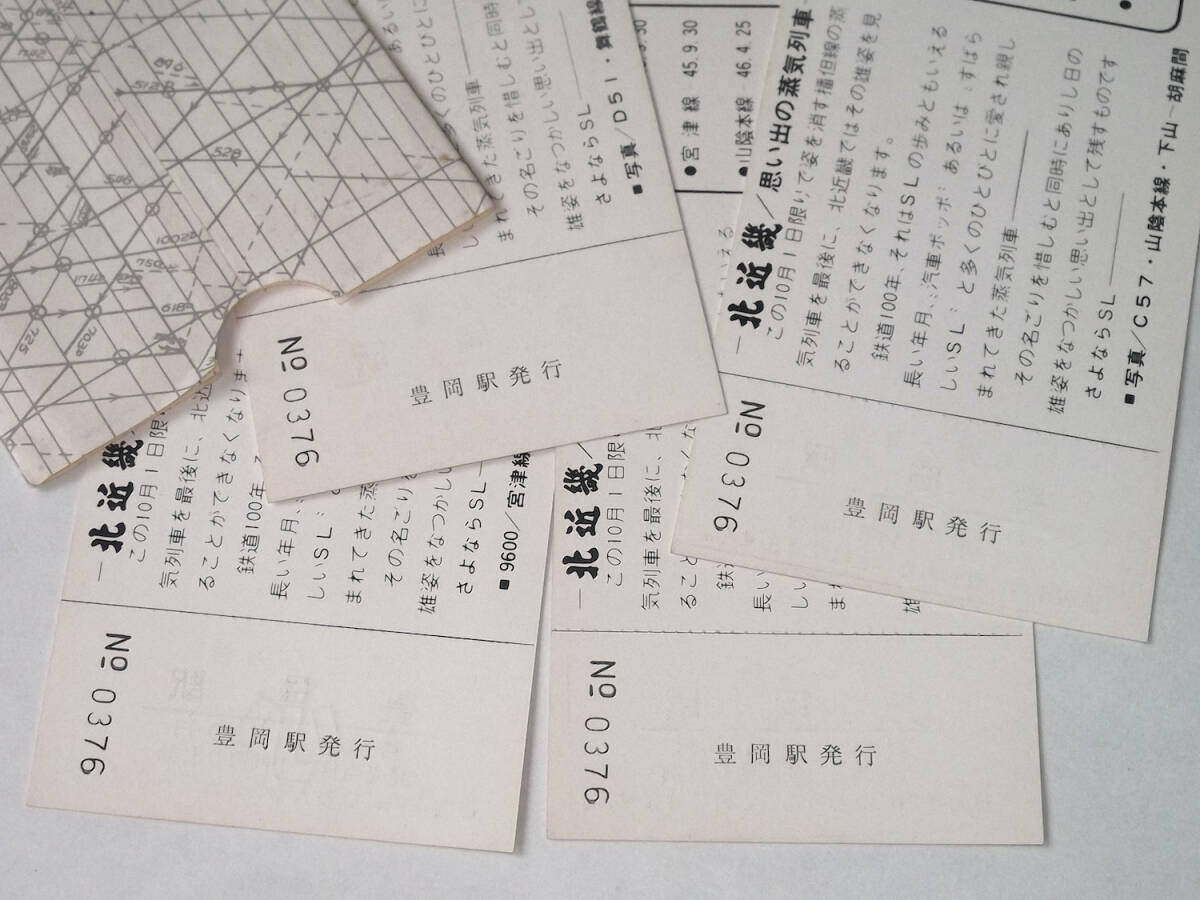 518
5125
528
1002D
618
703D
725
あるい
くのひとびとに
まれてきた蒸気列車
その名ごりを惜しむと同時
雄姿をなつかしい思い出とし
さよならSL
■写真/D51・舞鶴線
№ 0376
豊岡駅発行
●宮津線 45.9.30
●山陰本線 46.4.25
北近畿/思い出の蒸気列車
この10月1日限りで姿を消す播但線の蒸
気列車を最後に、北近畿ではその雄姿を見
ることができなくなります。
鉄道100年、それはSLの歩みともいえる
長い年月、汽車ポッポ あるいは すばら
しいSL と多くのひとびとに愛され親し
まれてきた蒸気列車
その名ごりを惜しむと同時にありし日の
雄姿をなつかしい思い出として残すものです
さよならSL
■写真/C57・山陰本線・下山―胡麻間
№ 0376
豊岡駅発行
北近畿
この10月1日限
気列車を最後に、北近
ることができなくなりま
鉄道100年
長い年月、
しいSL
まれてきた蒸
その名ごりを
雄姿をなつかし
さよならSL
■9600/宮津線
№ 0376
豊岡駅発行
北近畿/
この10月1日限
気列車を最後に、北
ること
鉄道
長い
しい
ま
雄
№ 0376
豊岡駅発行